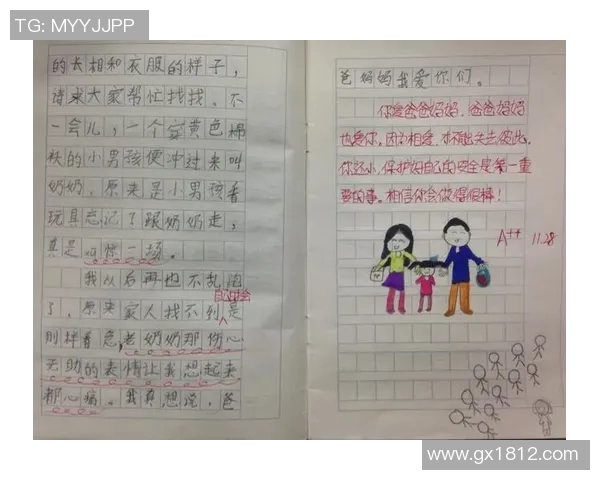 TG: MYYJJPP
的长相和衣服的样子，
请来大家帮忙找找。不
一会儿，一个穿黄色棉
袄的小男孩便冲过来叫
奶奶，原来是小男孩看
玩具忘记了跟奶奶走，
真是虚惊一场。
我以后再也不乱跑
自己时会
了，原来家人找不到是
那样着急，老奶奶那伤心
无助的表情让我想起来
都心痛。我真想说，爸
爸妈妈我爱你们。
你爱爸爸妈妈，爸爸妈妈
也爱你。因为相爱，才不能失去彼此。
你还小，保护好自己的安全是第一重
要的事。相信你会做得很棒！
A++ 11.28
www.gx1812.com